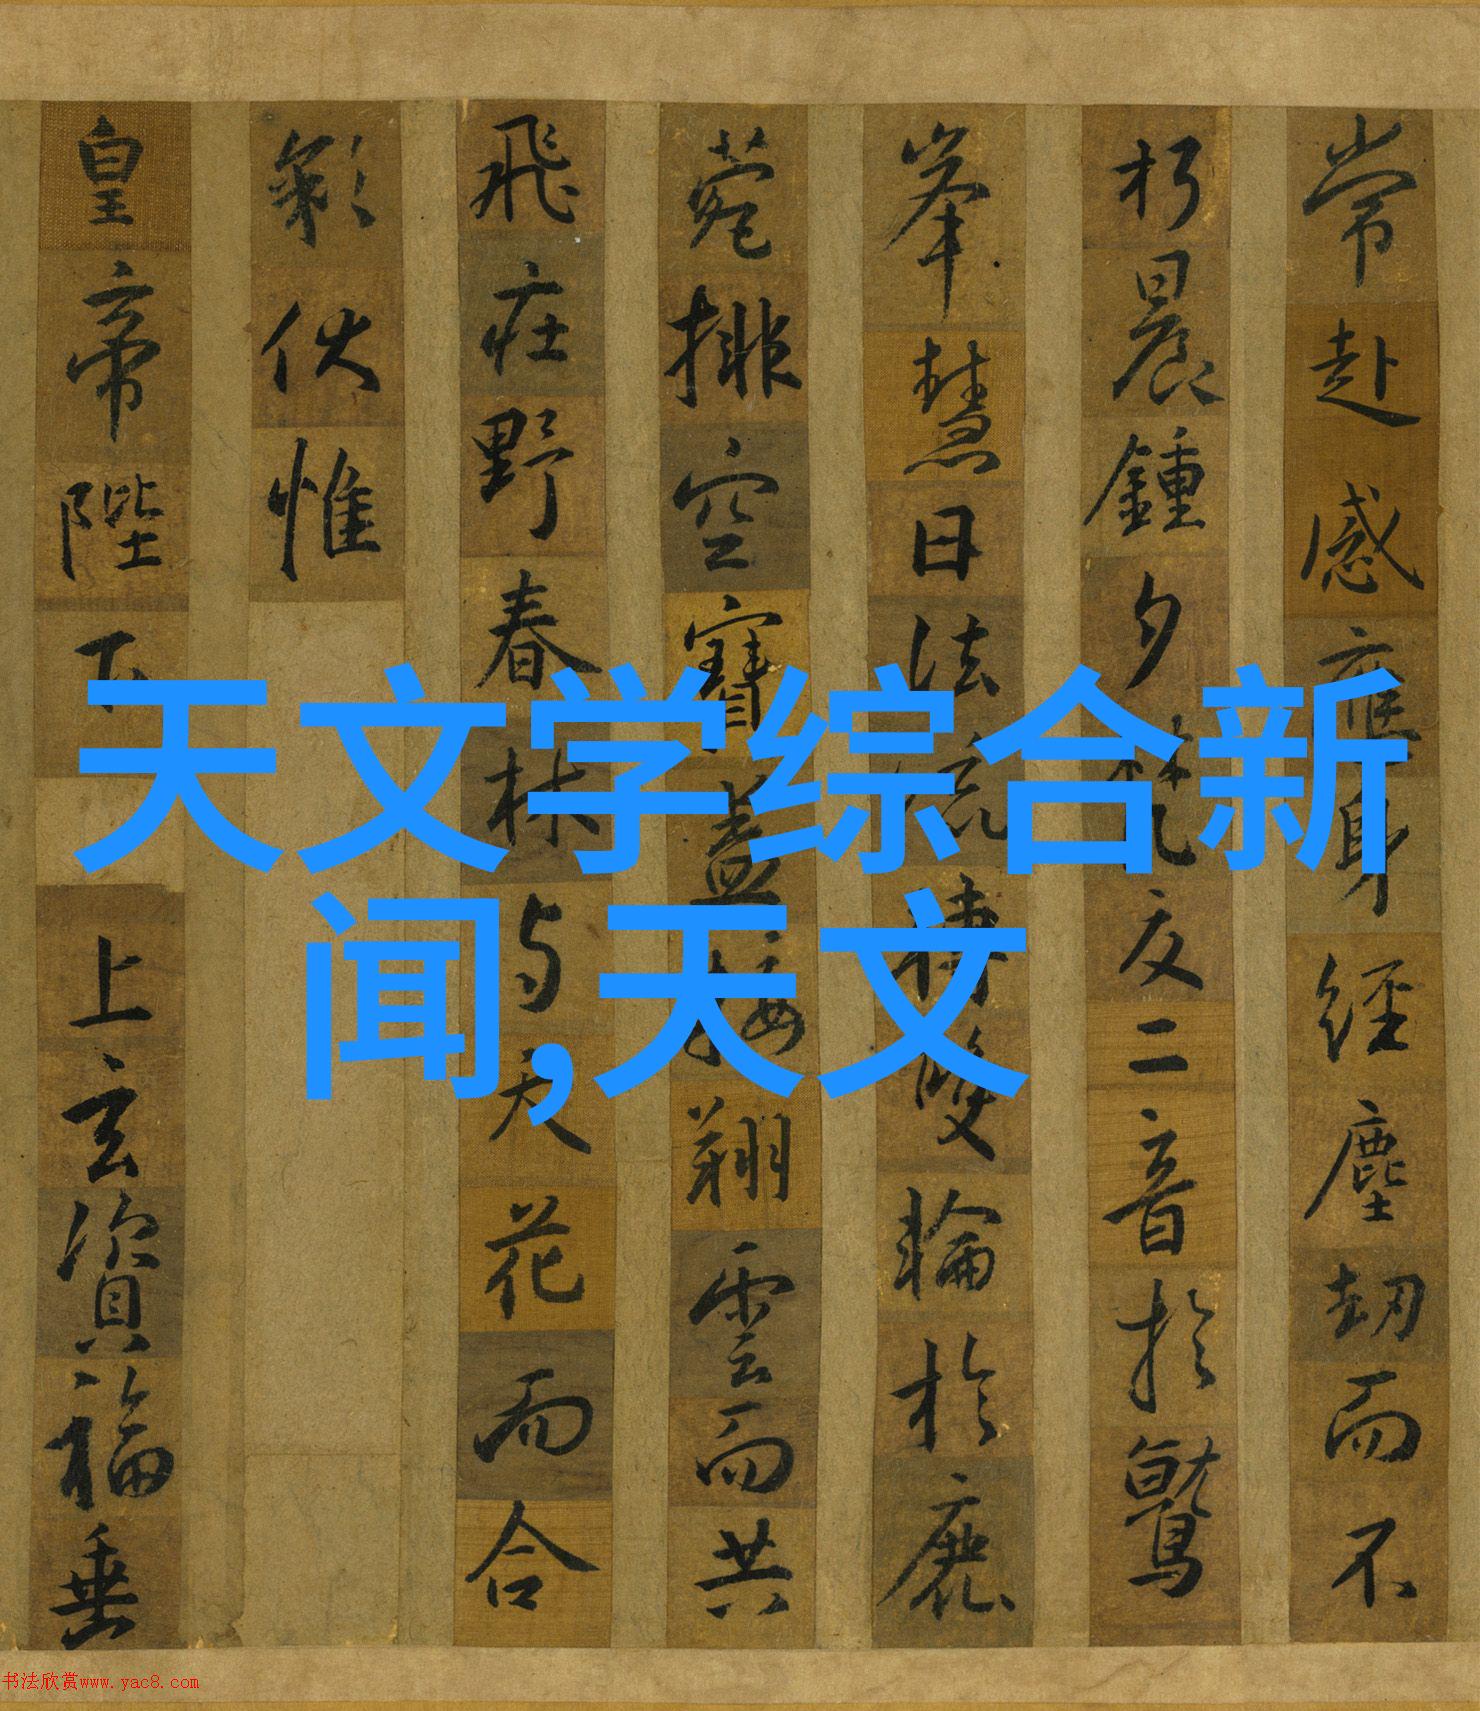 常赴感應身經塵劫而不
朽晨鍾夕梵交二音於鷲
峯慧日法流轉雙輪於鹿
菀排空寶蓋接翔雲而共
飛莊野春林与天花而合
彩伏惟
皇帝陛下
上玄資福垂
天文学综合新
闻,天文
书法欣赏www.yac8.com